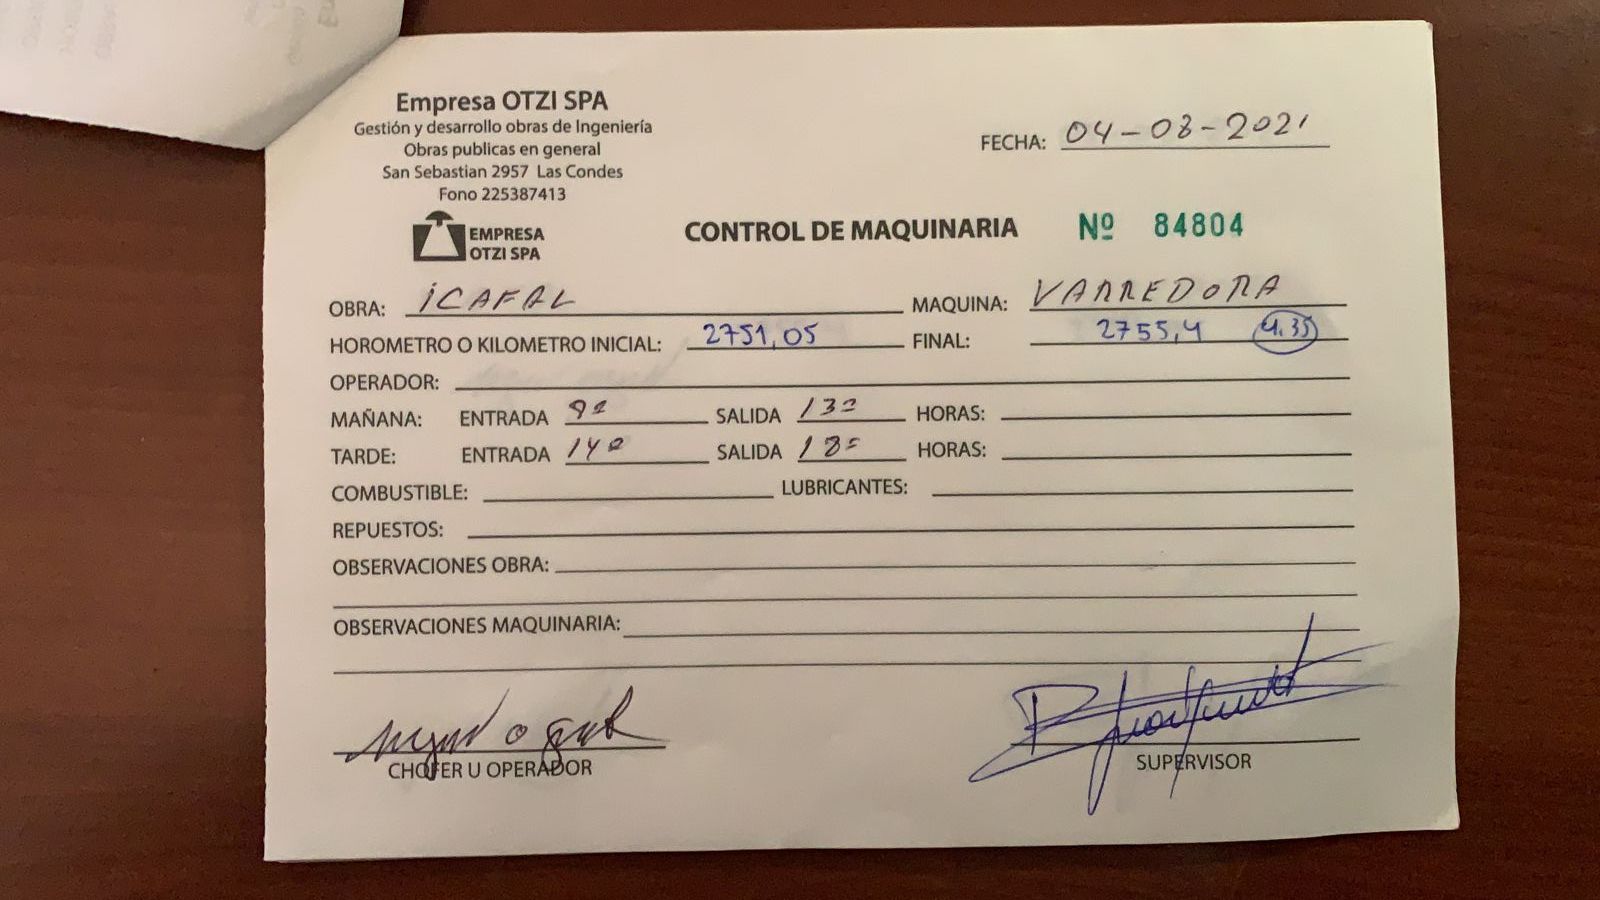 Empresa OTZI SPA
Gestión y desarrollo obras de Ingeniería
Obras publicas en general
San Sebastian 2957 Las Condes
Fono 225387413
FECHA: 04-08-2021
EMPRESA
OTZI SPA
CONTROL DE MAQUINARIA Nº 84804
OBRA: ICAFAL MAQUINA: VARREDORA
HOROMETRO O KILOMETRO INICIAL: 2751,05 FINAL: 2755,4 4.35
OPERADOR:
MAÑANA: ENTRADA SALIDA 13º HORAS:
TARDE: ENTRADA 14º SALIDA 18º HORAS:
COMBUSTIBLE: LUBRICANTES:
REPUESTOS:
OBSERVACIONES OBRA:
OBSERVACIONES MAQUINARIA:
CHOFER U OPERADOR
SUPERVISOR